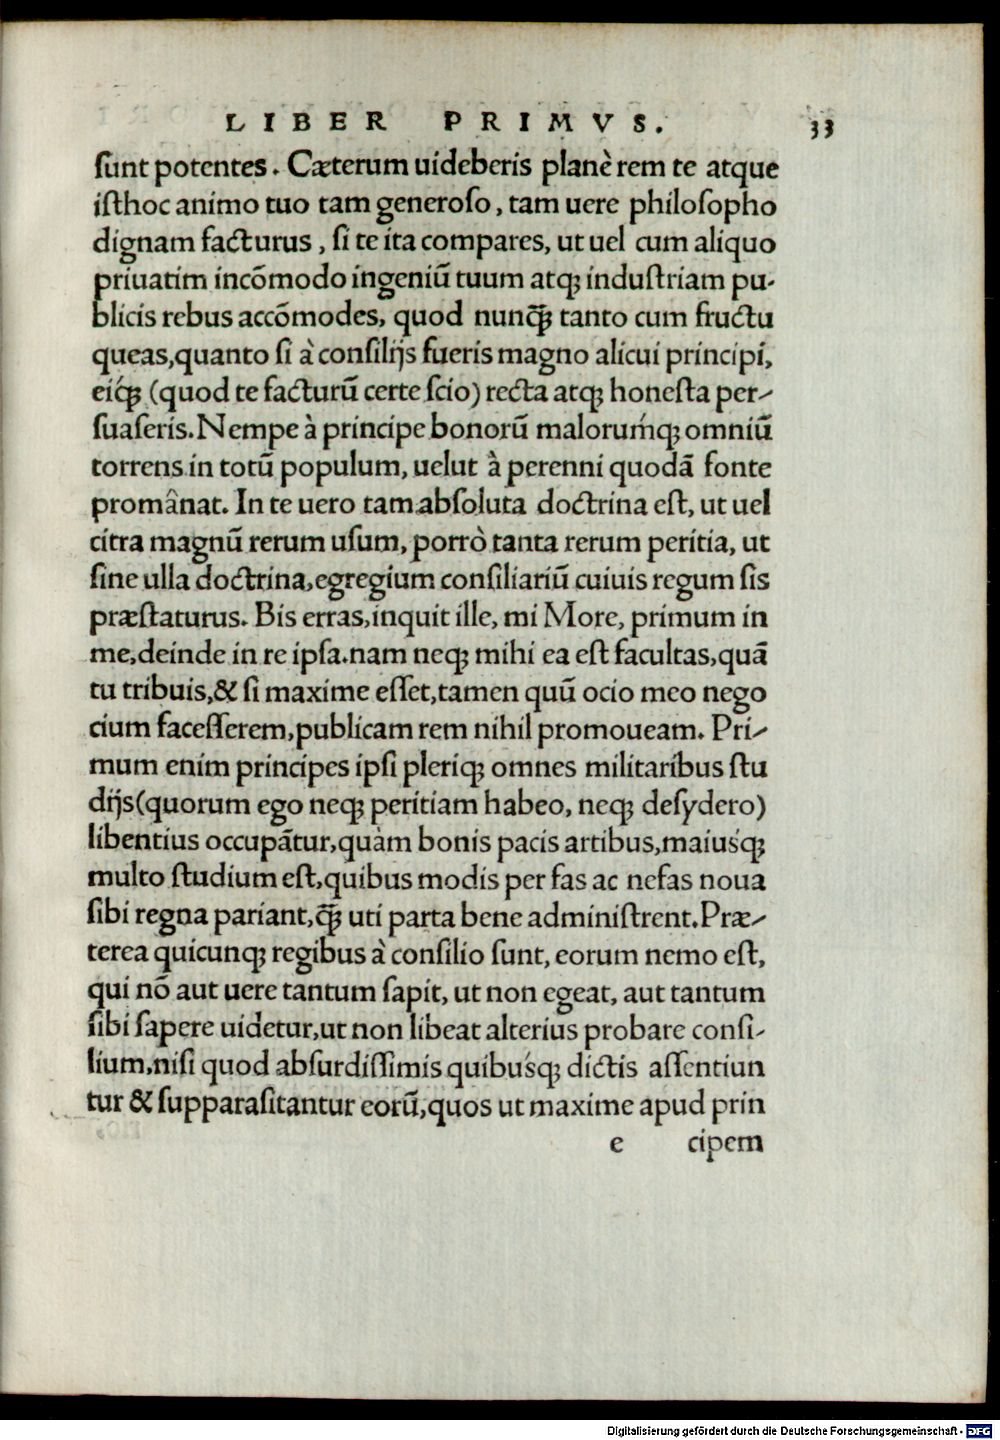 LIBER PRIMVS. 33
ſunt potentes. Cæterum uideberis planè rem te atque
iſthoc animo tuo tam generoſo, tam uere philoſopho
dignam facturus, ſi te ita compares, ut uel cum aliquo
priuatim incõmodo ingeniũ tuum atq; induſtriam pu-
blicis rebus accõmodes, quod nunq̃ tanto cum fructu
queas, quanto ſi à conſilijs fueris magno alicui principi,
eiq́; (quod te facturũ certe ſcio) recta atq; honeſta per-
ſuaſeris. Nempe à principe bonorũ malorumq́; omniũ
torrens in totũ populum, uelut à perenni quodã fonte
promânat. In te uero tam abſoluta doctrina eſt, ut uel
citra magnũ rerum uſum, porrò tanta rerum peritia, ut
ſine ulla doctrina, egregium conſiliariũ cuiuis regum ſis
præſtaturus. Bis erras, inquit ille, mi More, primum in
me, deinde in re ipſa. nam neq; mihi ea eſt facultas, quã
tu tribuis, & ſi maxime eſſet, tamen quũ ocio meo nego
cium faceſſerem, publicam rem nihil promoueam. Pri-
mum enim principes ipſi pleriq; omnes militaribus ſtu
dijs (quorum ego neq; peritiam habeo, neq; deſydero)
libentius occupãtur, quàm bonis pacis artibus, maiusq́;
multo ſtudium eſt, quibus modis per fas ac nefas noua
ſibi regna pariant, q̃ uti parta bene adminiſtrent. Præ-
terea quicunq; regibus à conſilio ſunt, eorum nemo eſt,
qui nõ aut uere tantum ſapit, ut non egeat, aut tantum
ſibi ſapere uidetur, ut non libeat alterius probare conſi-
lium, niſi quod abſurdiſſimis quibusq́; dictis aſſentiun
tur & ſupparaſitantur eorũ, quos ut maxime apud prin
e cipem
Digitalisierung gefördert durch die Deutsche Forschungsgemeinschaft - DFG